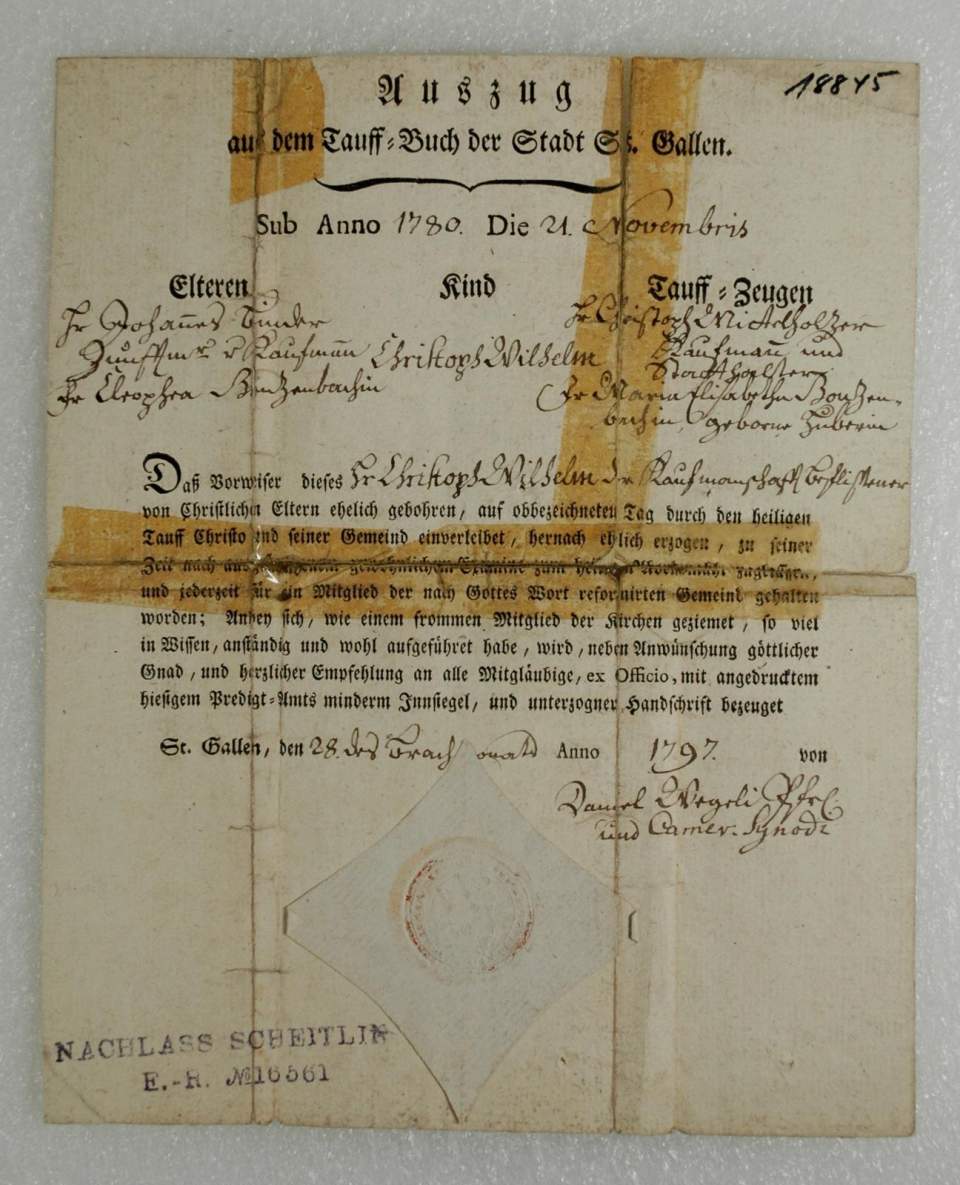 18845
Auszug
aus dem Tauff-Buch der Stadt St. Gallen.
Sub Anno 1780. Die 21. Novembris
Elteren
Hr Johannes Binder
Zunfftmr. u Kaufmann
Fr Cleophea
Kind
Christoph Wilhelm
Tauff-Zeugen
Hr Christoph Mittelholtzer
Kaufmann und
Statthalter
Fr Maria Elisabetha
geborne Zuberin
Daß Vorweiser dieses Hr Christoph Wilhelm der Kaufmanschafft beflissener
von Christlichen Eltern ehelich gebohren, auf obbezeichneten Tag durch den heiligen
Tauff Christo und seiner Gemeind einverleibet, hernach ehrlich erzogen, zu seiner
Zeit nach gewöhnlichem Examine zum heiligen Nachtmahl zugelassen,
und jederzeit für ein Mitglied der nach Gottes Wort reformirten Gemeind gehalten
worden; Anbey sich, wie einem frommen Mitglied der Kirchen geziemet, so viel
in Wissen, anständig und wohl aufgeführet habe, wird, neben Anwünschung göttlicher
Gnad, und herzlicher Empfehlung an alle Mitgläubige, ex Officio, mit angedrucktem
hiesigem Predigt-Amts minderm Innsiegel, und unterzogner Handschrift bezeuget
St. Gallen, den 28. des Brachmonats Anno 1797. von
Daniel Wegeli Pfr.
und Camer. Synodi
NACHLASS SCHEITLIN
E.-R. № 16561